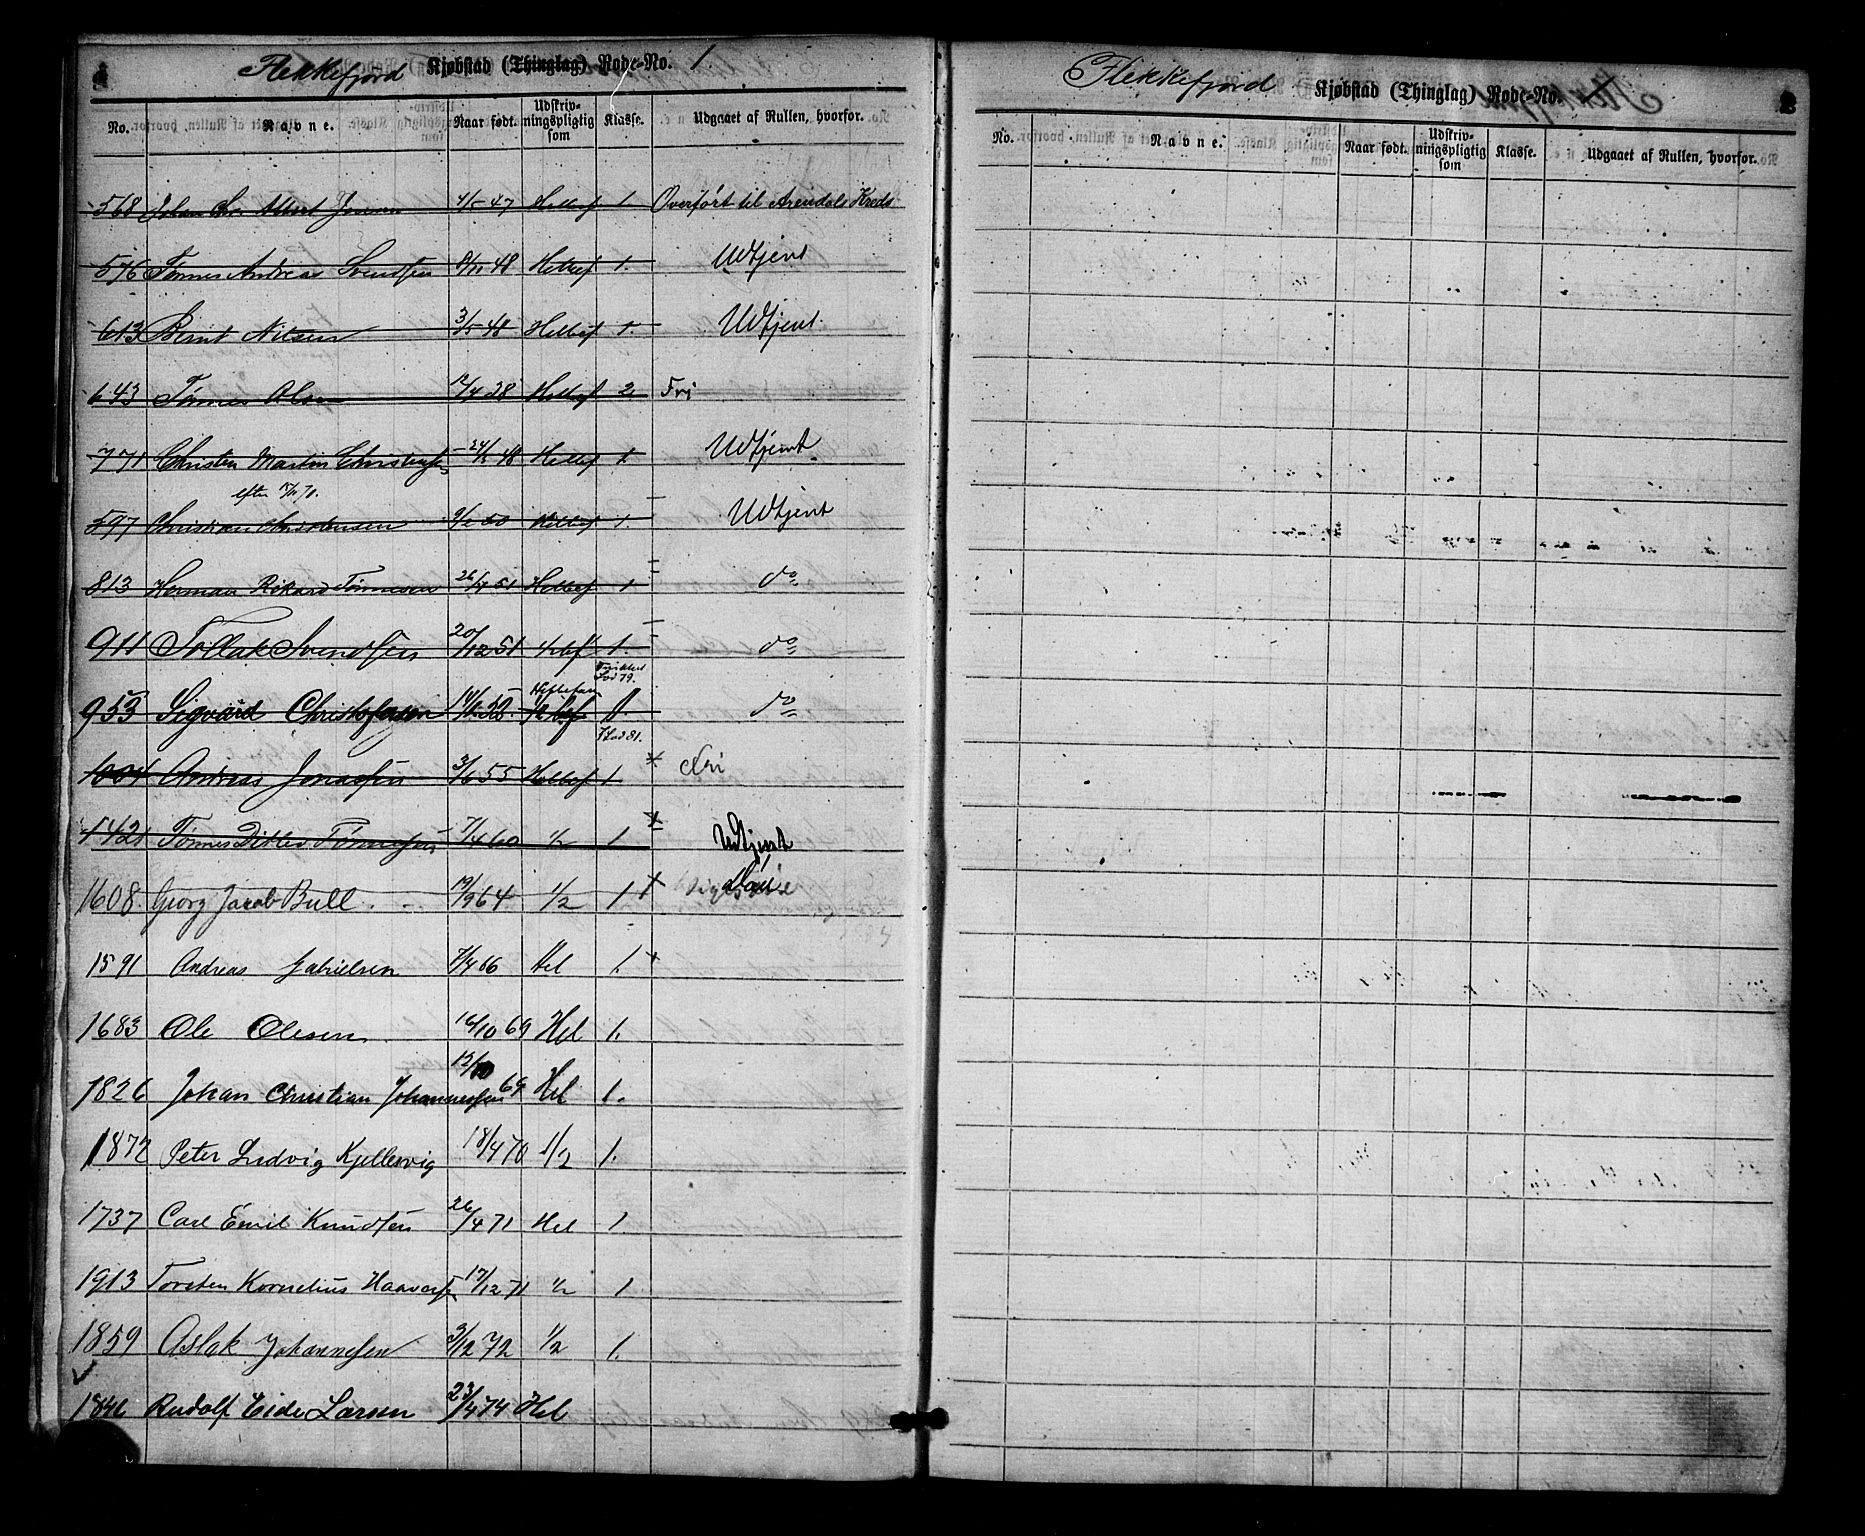 1
Flekkefjord Kjøbstad (Thinglag) Rode-No. 1.
No. Navne. Naar født. Udskriv-ningspligtig som Klasse. Udgaaet af Rullen, hvorfor.
568 Johan Albert Jensen 4/5 47 Helbef 1 Overført til Arendals Kreds
576 Tønnes Andreas Svendsen 8/11 48 Helbef 1. Udtjent
613 Bernt Nilsen 3/5 48 Helbef 1. Udtjent.
643 Tønnes Olsen 17/4 38 Helbef 2 Fri
771 Christen Martin Christensen 48 Helbef 1 Udtjent.
efter 70.
597 Christian Christensen 9/2 50 Helbef 1. Udtjent
813 Herman Rikard Tønnesen 26/4 51 Helbef 1 do
911 Tollak Svendsen 20/12 51 1/2 bef 1. do
Lod 79.
953 Sigvard Christofersen 1/2 bef 1. do
Lod 81.
1004 Andreas Jonassen 3/6 55 Helbef 1 * Fri
1421 Tønnes Ditlev Tønnessen 7/4 60 1/2 1 Udtjent
1608. Georg Jacob Bull 19/9 64 1/2 1 Død
1591 Andreas Gabrielsen 7/4 66 Hel 1.
1683 Ole Olesen 16/10 69 Hel 1.
1826 Johan Christian Johannessen 19/10 69 Hel 1.
1872 Peter Ludvig Kjellesvig 18/4 70 1/2 1.
1737 Carl Emil Knudsen 26/4 71 Hel 1.
1913 Torsten Kornelius Haavors 17/12 71 1/2 1
1859 Aslak Johannesen 3/12 72 1/2 1.
1846 Rudolf Eide Larsen 23/4 74 Hel
Flekkefjord Kjøbstad (Thinglag) Rode-No. 2
No. Navne. Naar født. Udskriv-ningspligtig som Klasse. Udgaaet af Rullen, hvorfor.